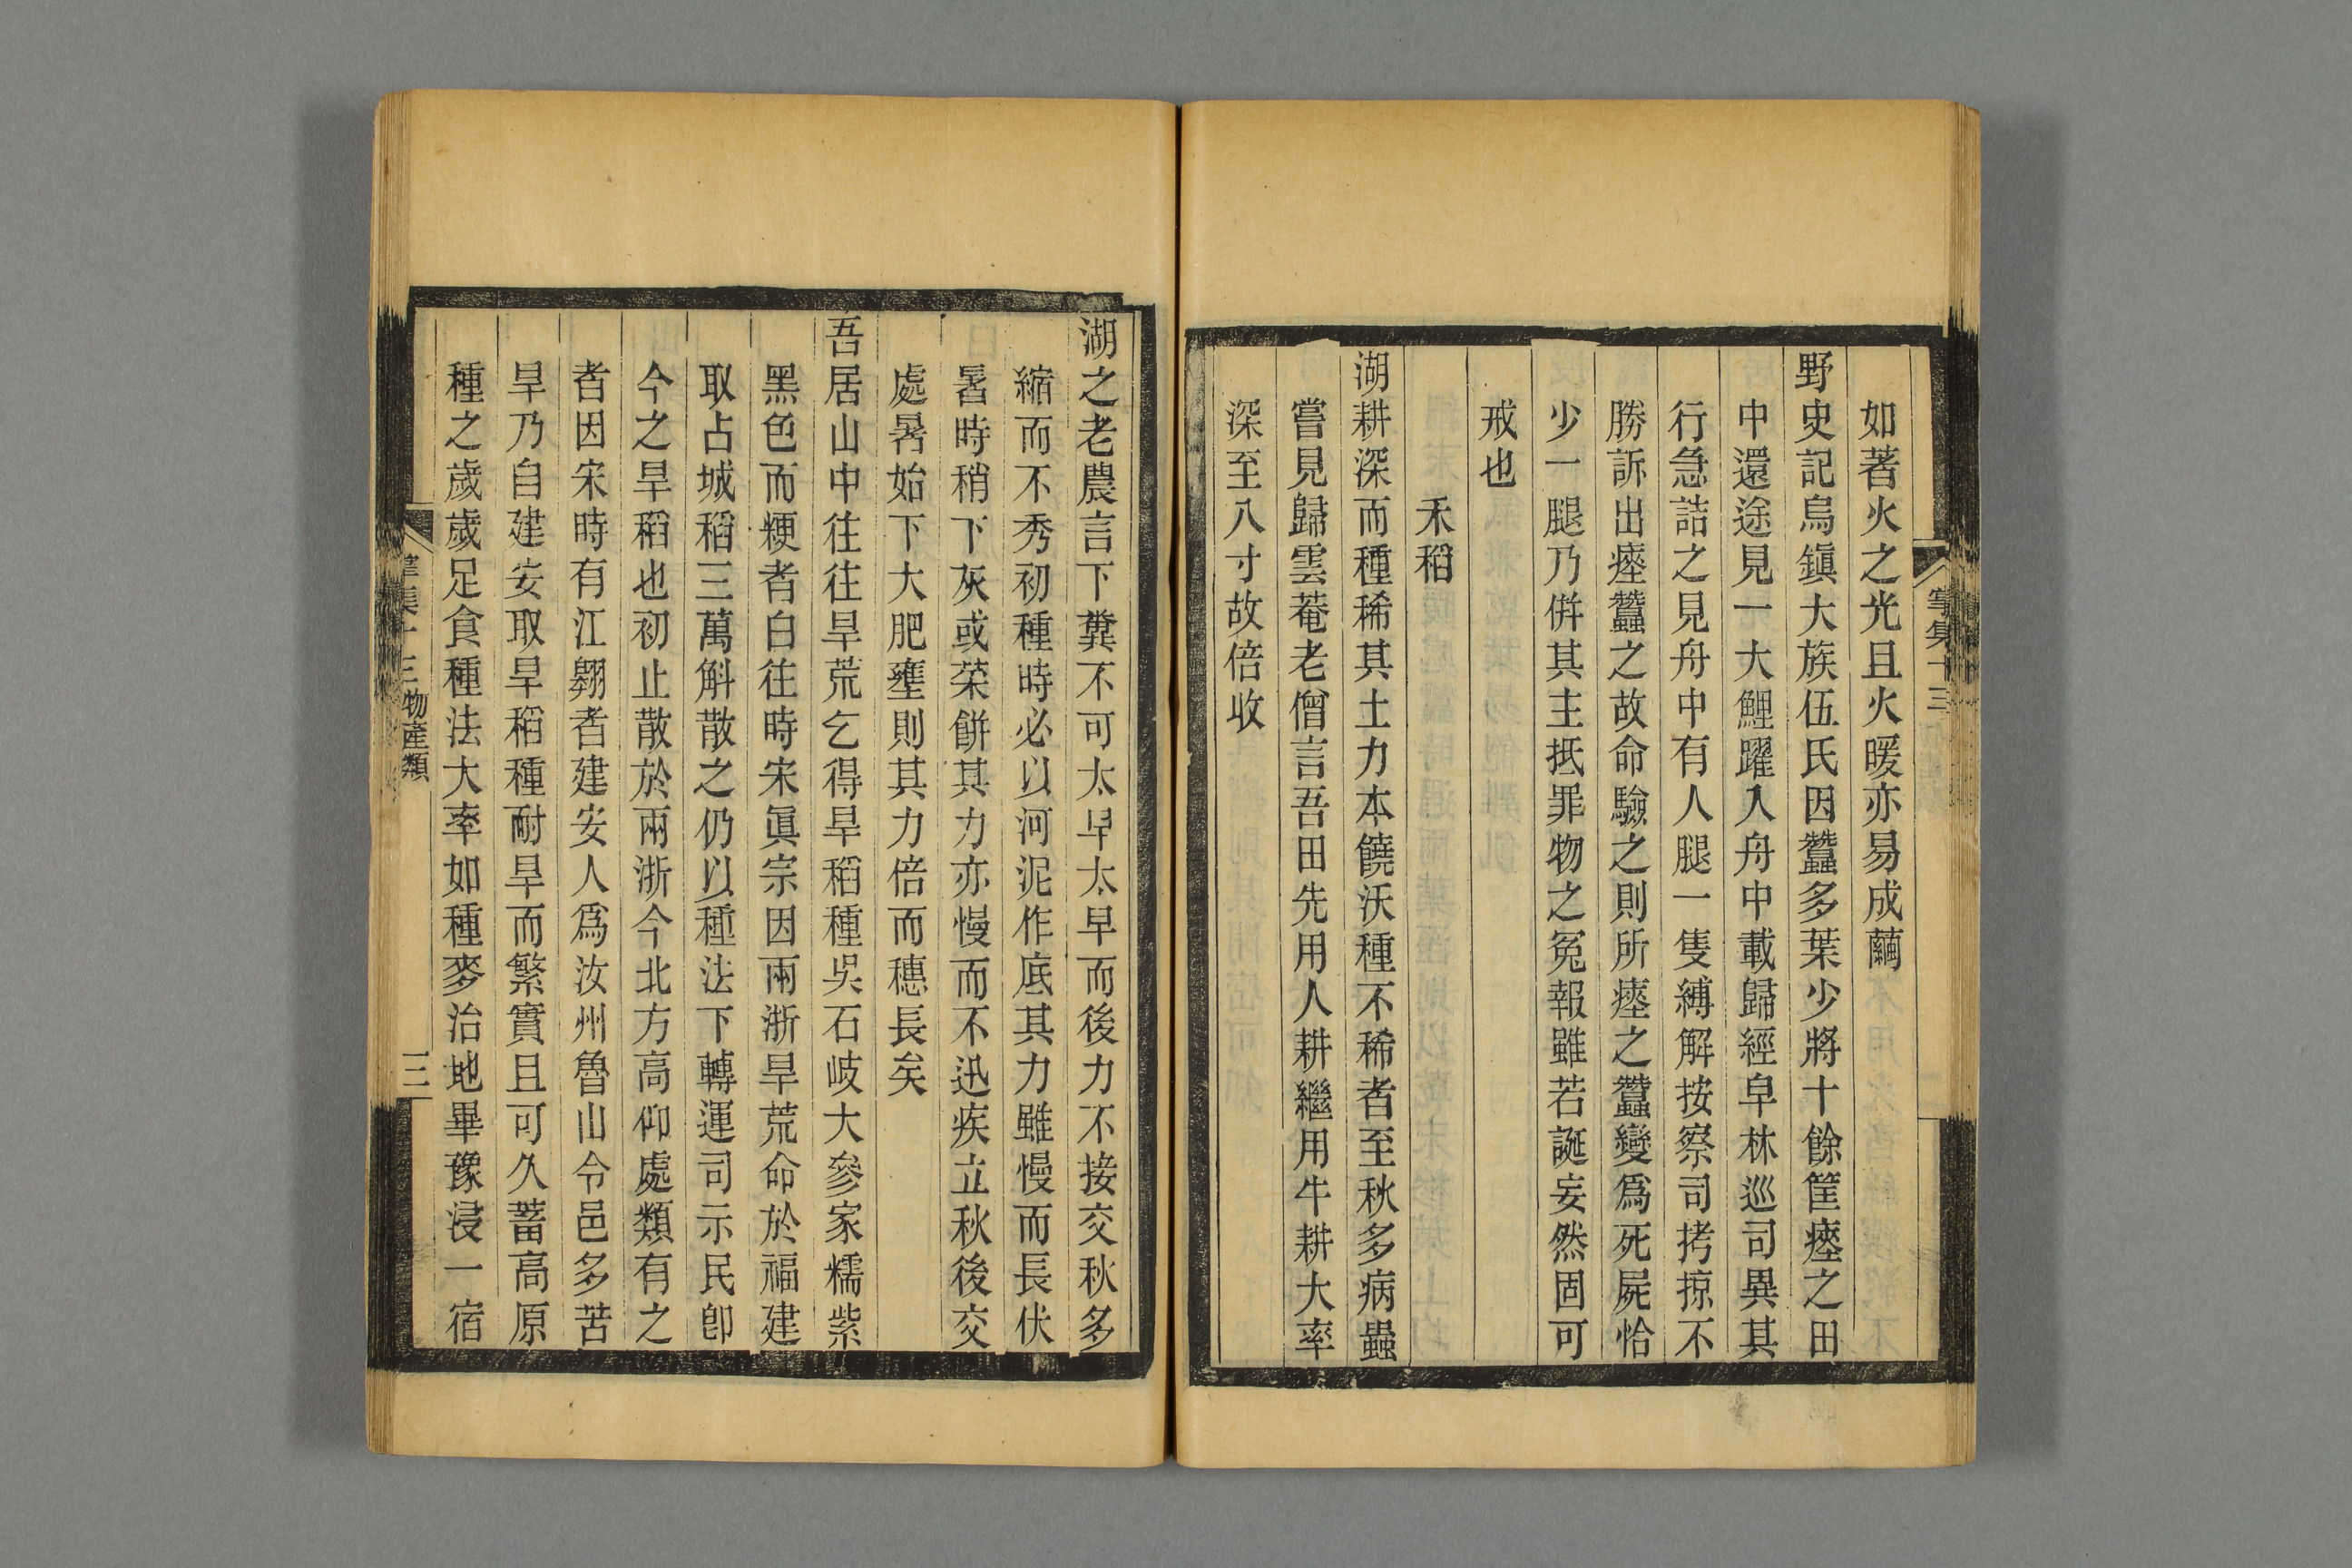 如著火之光且火暖亦易成繭
野史記烏鎮大族伍氏因蠶多葉少將十餘筐瘞之田
中還途見一大鯉躍入舟中載歸經皁林巡司異其
行急詰之見舟中有人腿一隻縛解按察司拷掠不
勝訴出瘞蠶之故命驗之則所瘞之蠶變爲死屍恰
少一腿乃併其主抵罪物之冤報雖若誕妄然固可
戒也
禾稻
湖耕深而種稀其土力本饒沃種不稀者至秋多病蟲
嘗見歸雲菴老僧言吾田先用人耕繼用牛耕大率
深至八寸故倍收
湖之老農言下糞不可太早太早而後力不接交秋多
縮而不秀初種時必以河泥作底其力雖慢而長伏
暑時稍下灰或菜餅其力亦慢而不迅疾立秋後交
處暑始下大肥壅則其力倍而穗長矣
吾居山中往往旱荒乞得旱稻種吳石岐大參家糯紫
黑色而粳者白往時宋眞宗因兩浙旱荒命於福建
取占城稻三萬斛散之仍以種法下轉運司示民卽
今之旱稻也初止散於兩浙今北方高仰處類有之
者因宋時有江翱者建安人爲汝州魯山令邑多苦
旱乃自建安取旱稻種耐旱而繁實且可久蓄高原
種之歲歲足食種法大率如種麥治地畢豫浸一宿
集十三 物產類
三